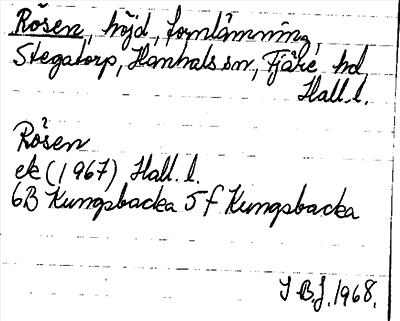 Rösen, höjd, fornlämning,
Stegatorp, Hanhals sn, Fjäre hd,
Hall. l.
Rösen
ek (1967) Hall. l.
6B Kungsbacka 5f Kungsbacka
I B.J. 1968.